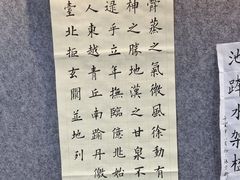 蒸之氣微風徐動有
神之勝地漢之甘泉不
逮乎立年撫臨億兆始
人東越青丘南踰丹徼
臺北拒玄闕並地列
池跨水架楹